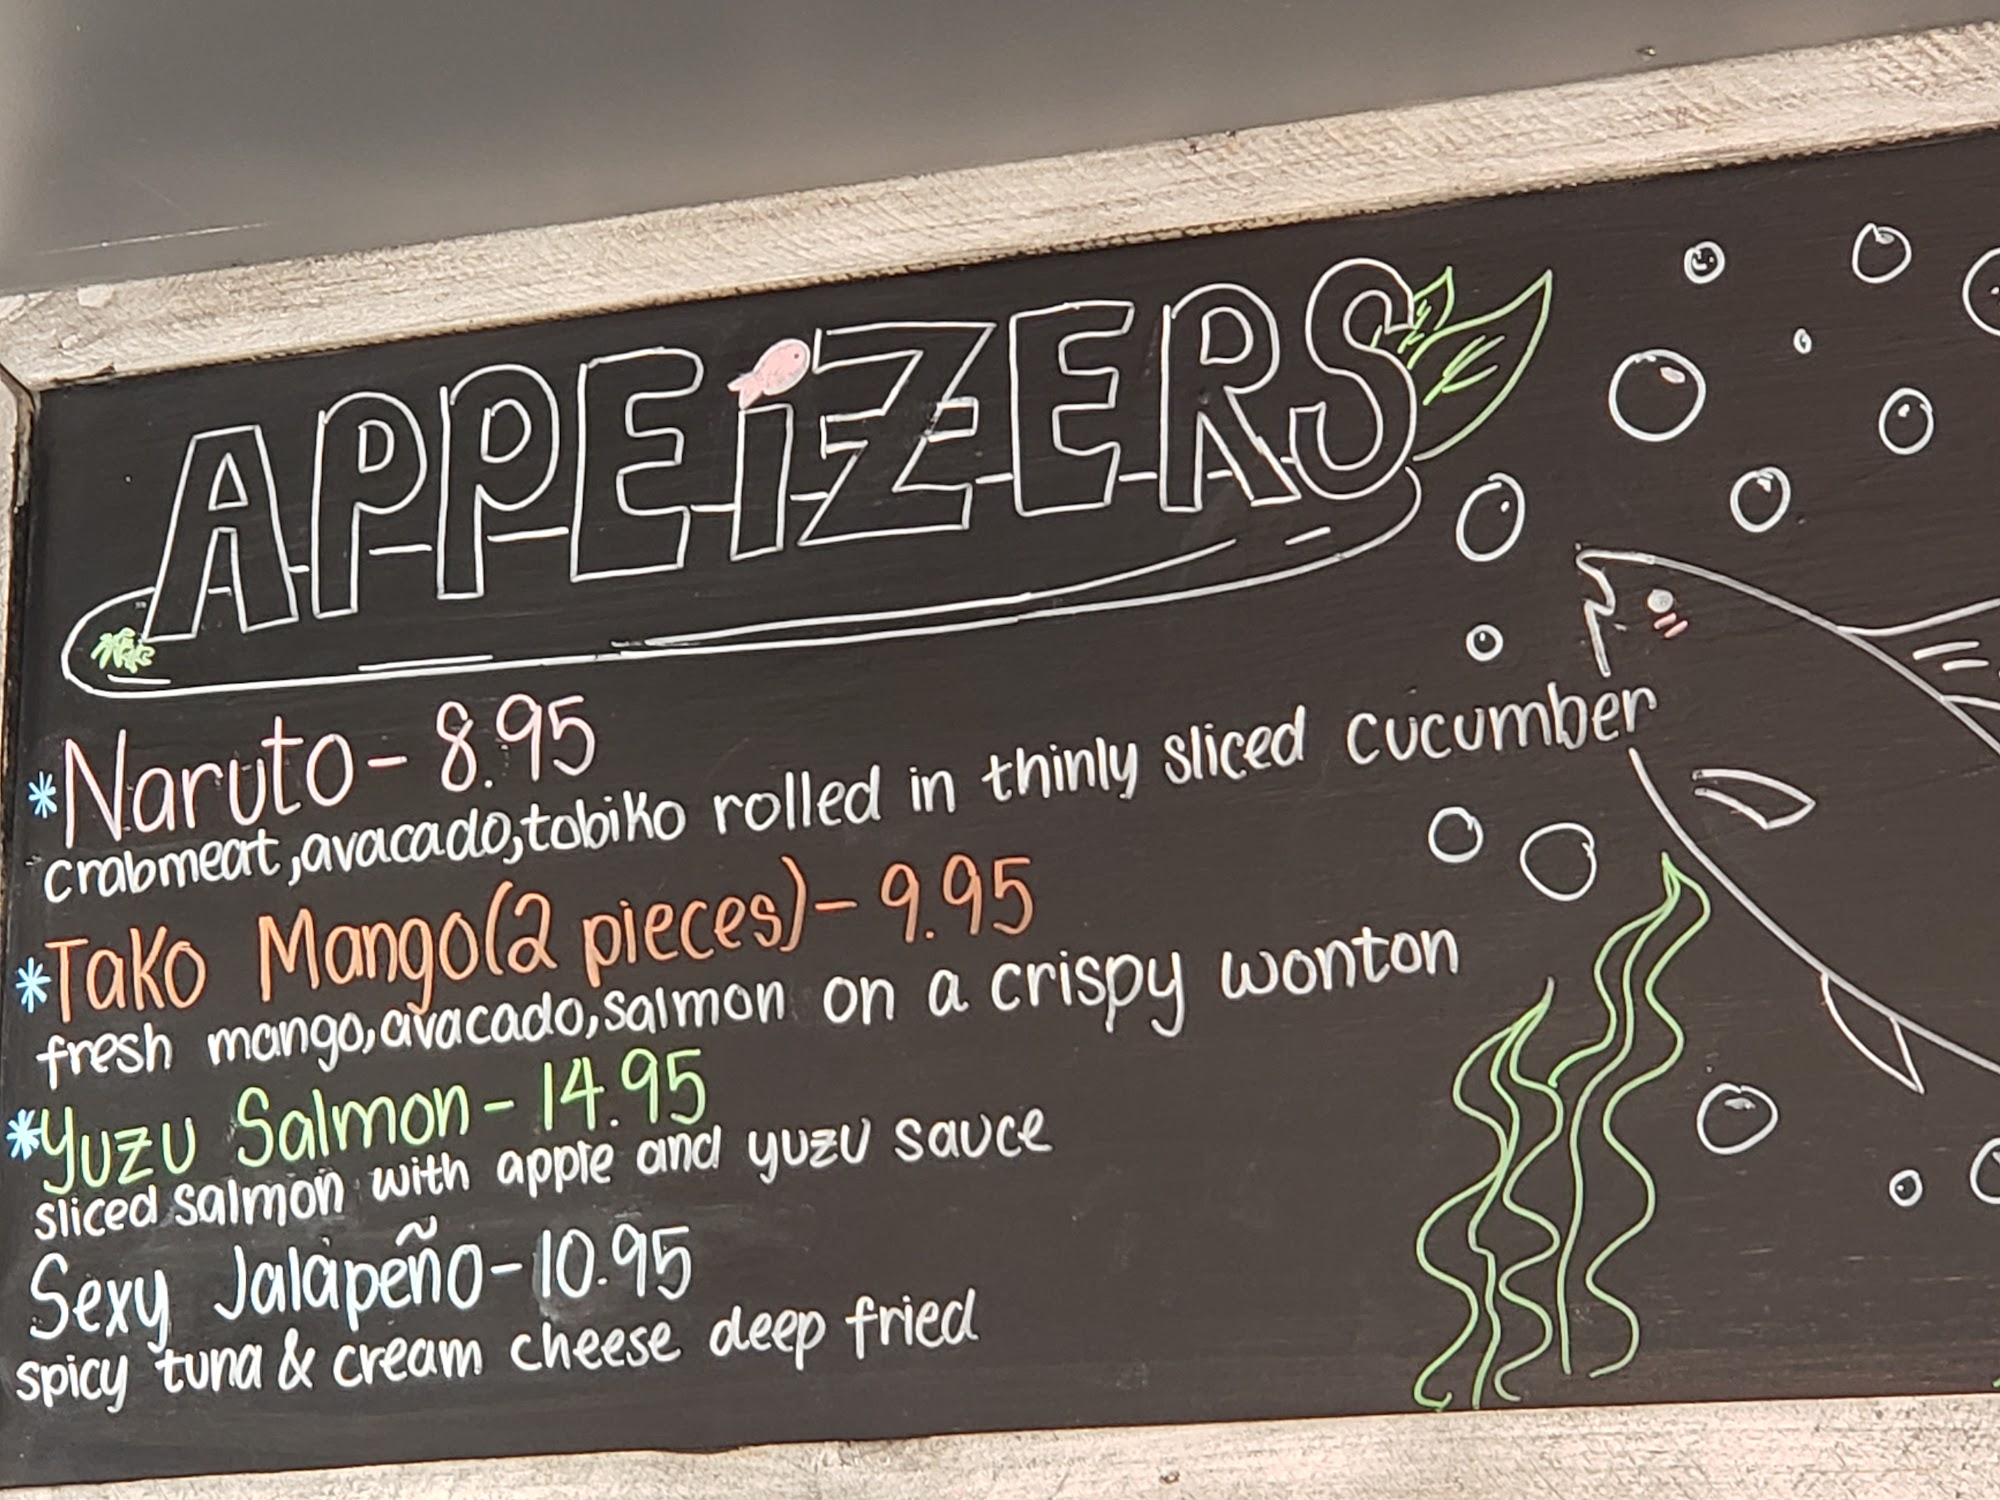 APPEiZERS
*Naruto- 8.95
crabmeat,avacado,tobiko rolled in thinly sliced cucumber
*Tako Mango(2 pieces)- 9.95
fresh mango,avacado,salmon on a crispy wonton
*Yuzu Salmon- 14.95
sliced salmon with apple and yuzu sauce
Sexy Jalapeño-10.95
spicy tuna & cream cheese deep fried